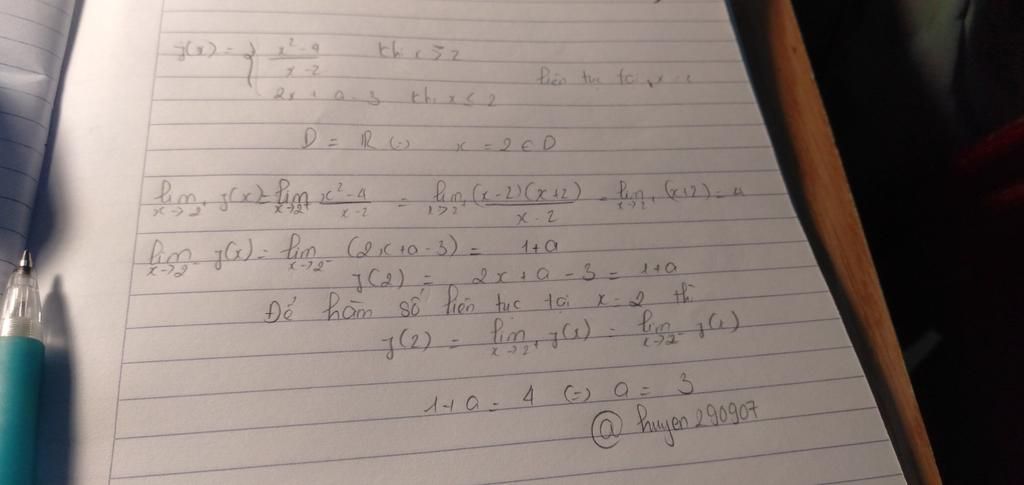 f(x) = { x² - 4 / x - 2 khi x > 2
2x + a - 3 khi x ≤ 2
liên tục tại x = 2
D = ℝ (=) x = 2 ∈ D
lim x→2⁺ f(x) = lim x→2⁺ x² - 4 / x - 2 = lim x→2⁺ (x-2)(x+2) / x - 2 = lim x→2⁺ (x+2) = 4
lim x→2⁻ f(x) = lim x→2⁻ (2x + a - 3) = 1 + a
f(2) = 2x + a - 3 = 1 + a
Để hàm số liên tục tại x = 2 thì
f(2) = lim x→2⁺ f(x) = lim x→2⁻ f(x)
1 + a = 4 (=) a = 3
@huyen290907